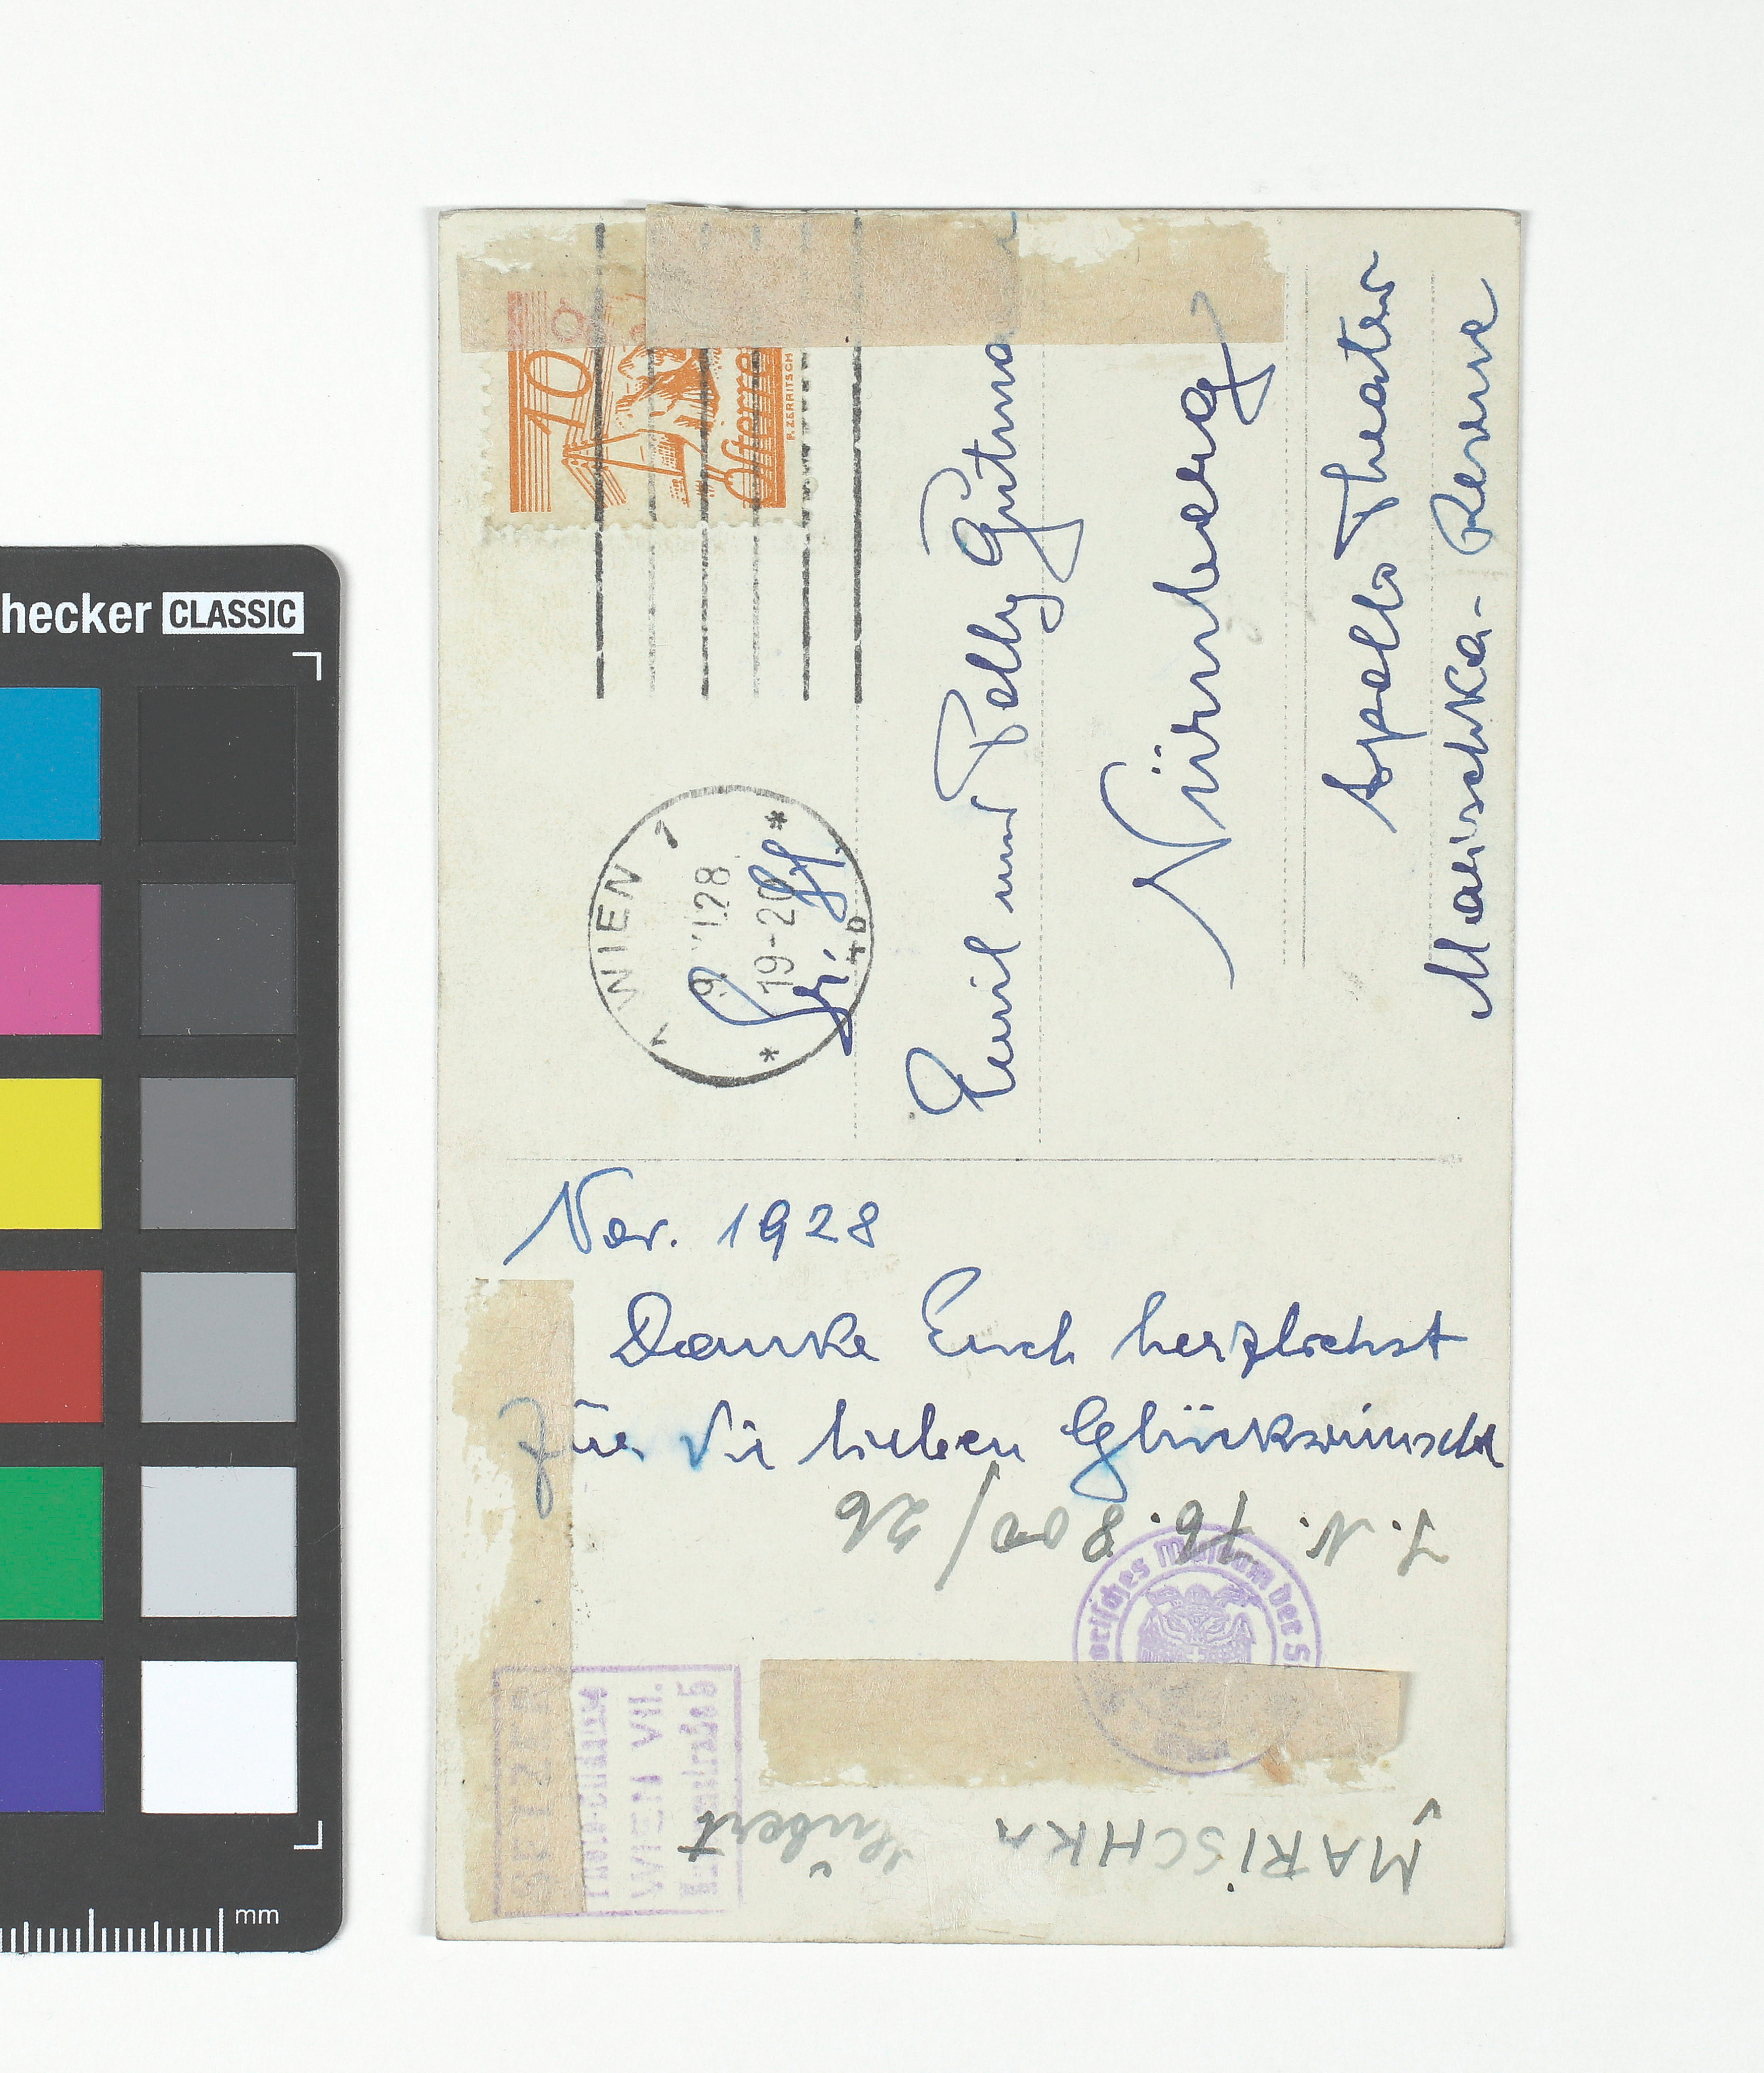 hecker CLASSIC
mm
10
Österre
R.ZERRITSCH
1 WIEN 1
28
19-20
Emil und Polly Gutma
Nürnberg
Apollo Theater
Marischka-Revue
Nov. 1928
Danke Euch herzlichst
für die lieben Glückwünsche
I.N. 76.800/26
orisches Museum der S
WIEN VII.
MARISCHKA
Hubert